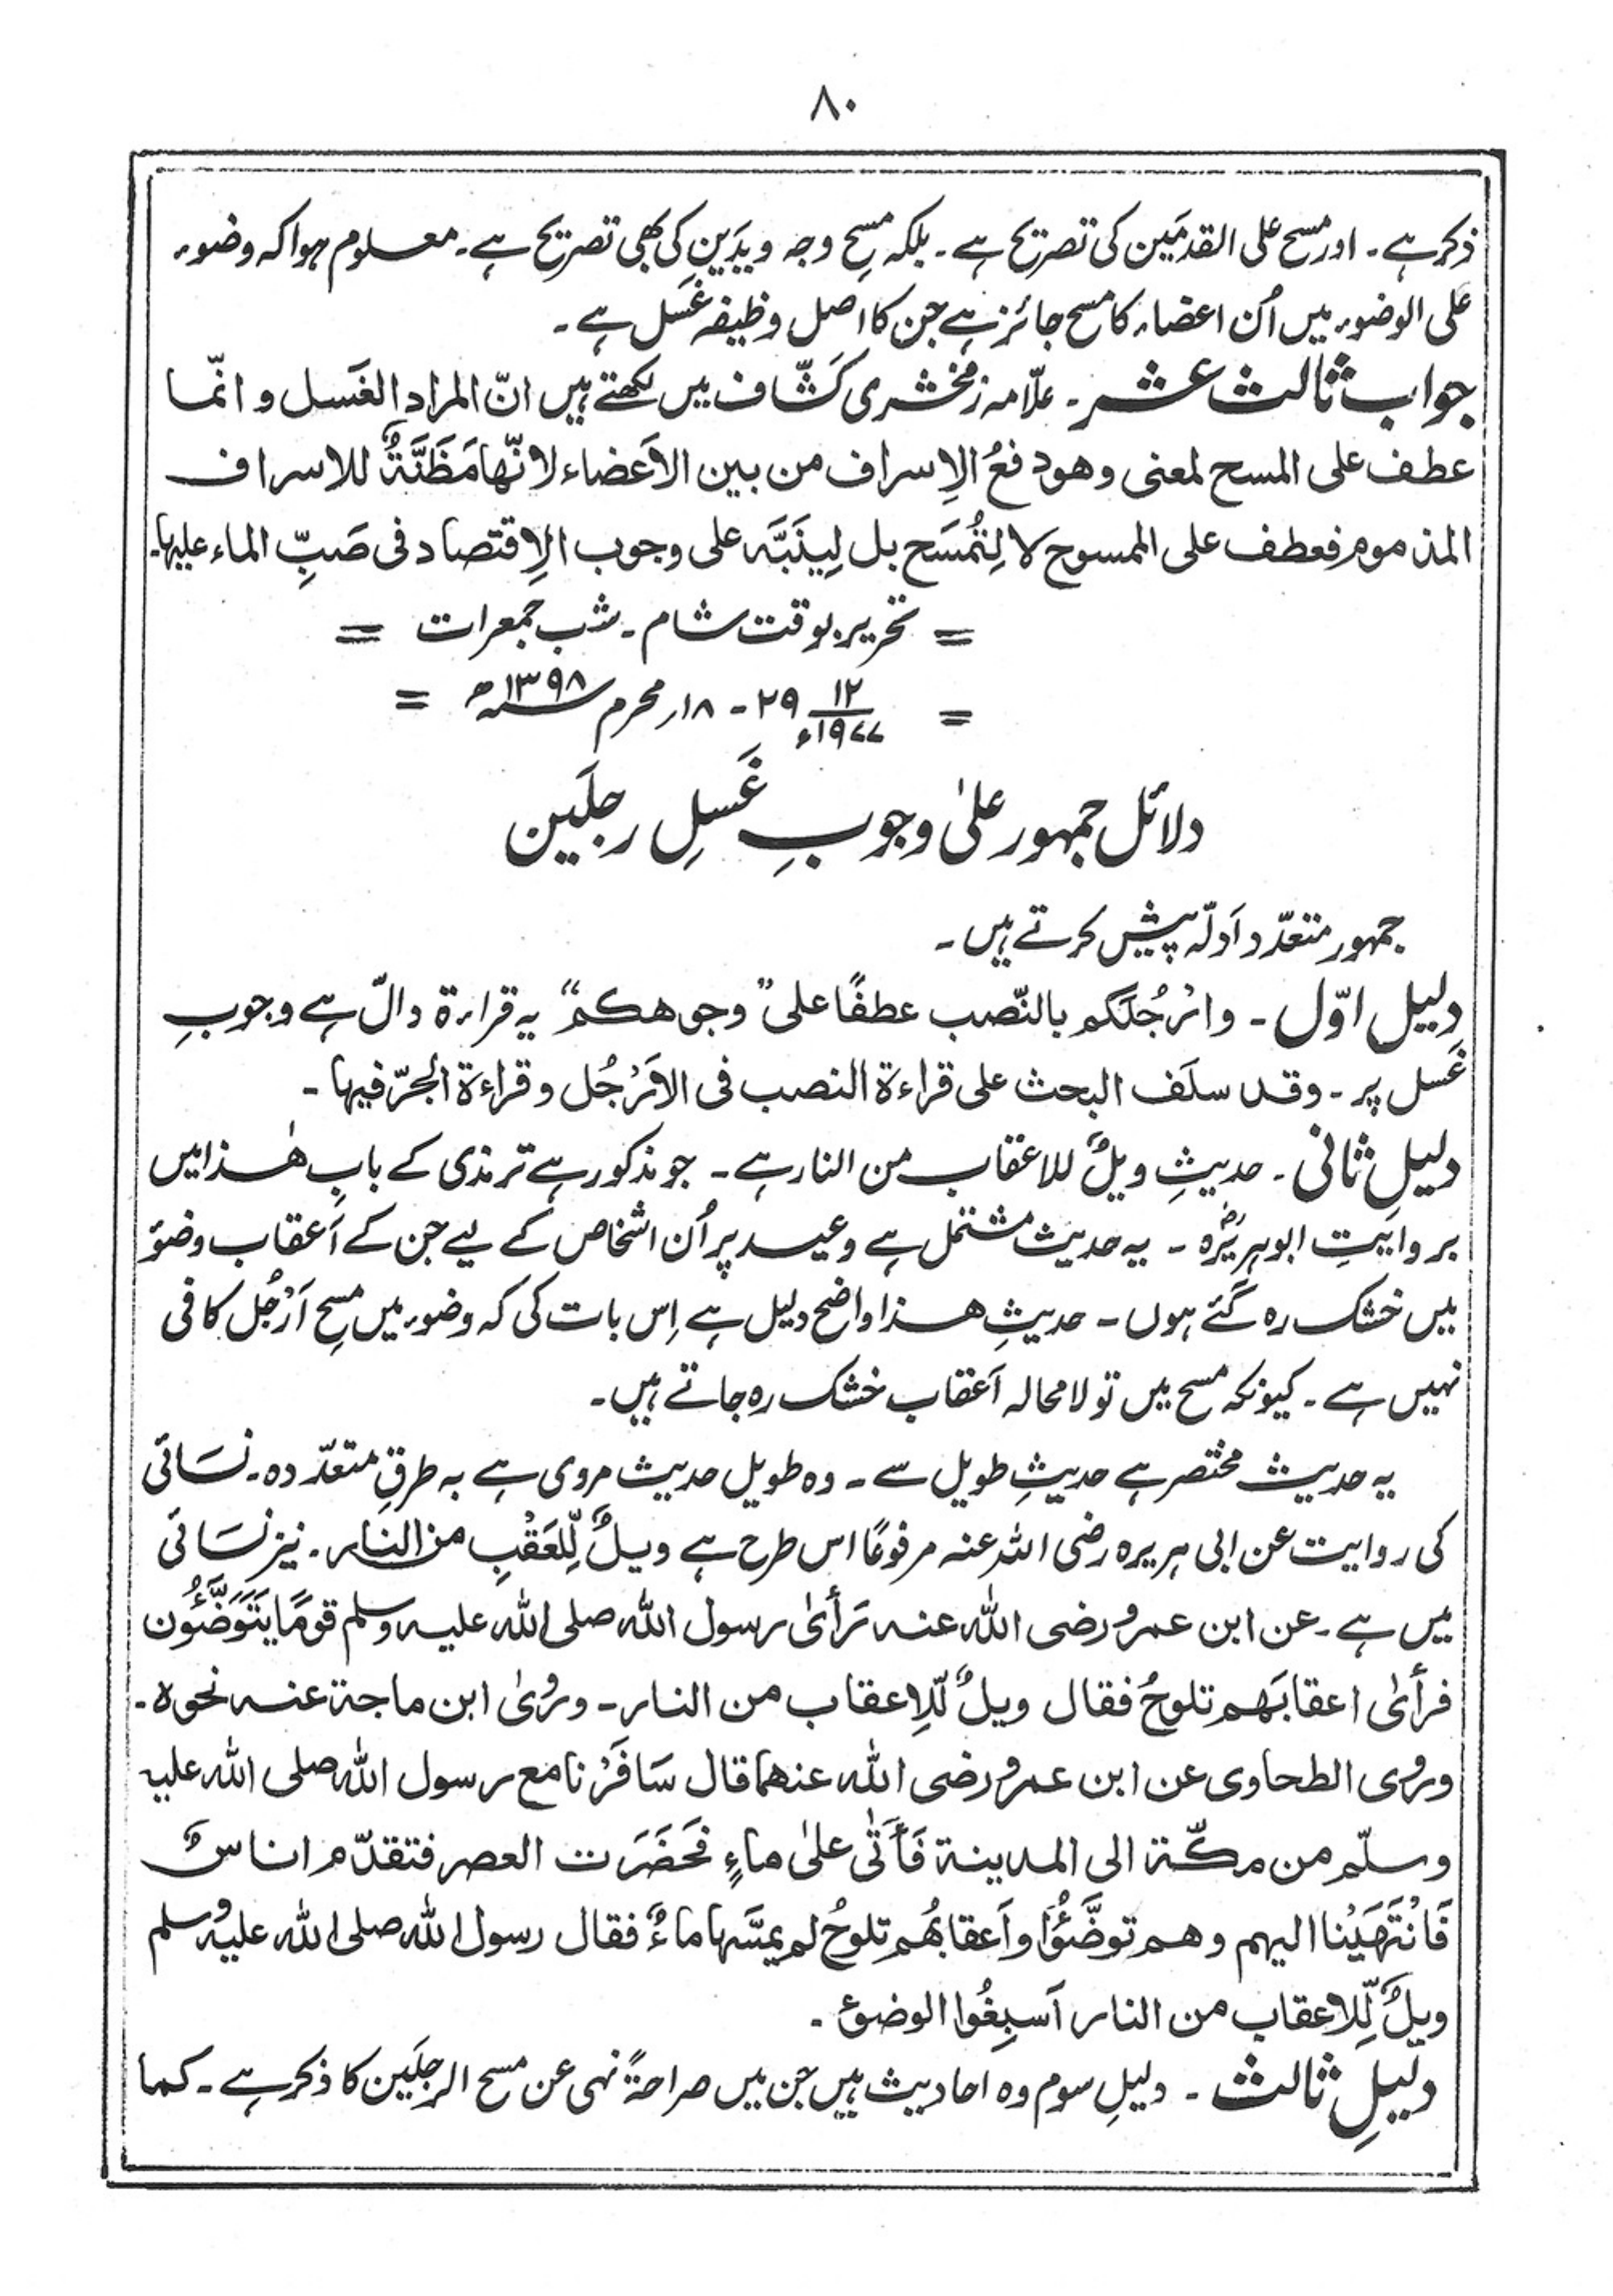 ۸۰
ذکر ہے۔ اور مسح علی القدمَین کی تصریح ہے۔ بلکہ مسحِ وجہ و یدَین کی بھی تصریح ہے۔ معلوم ہوا کہ وضوء
علی الوضوء میں اُن اعضاء کا مسح جائز ہے جن کا اصل وظیفہ غَسل ہے۔
جواب ثالث عشر۔ علّامہ زمخشری کَشّاف میں لکھتے ہیں انّ المراد الغَسل و انّما
عطف علی المسح لمعنی وھو دفعُ الاِسراف من بین الاَعضاء لانّھا مَظَنَّۃٌ للاسراف
المذموم فعطف علی الممسوح لا لِتُمسَح بل لِیُنَبَّہ علی وجوب الاِقتصاد فی صَبِّ الماء علیہا۔
= تحریر بوقت شام۔ شب جمعرات =
= ۲۹ ۱۲/۱۹۷۷ء - ۱۸ محرم ۱۳۹۸ھ =
دلائل جمہور علیٰ وجوبِ غَسلِ رجلَین
جمہور متعدّد اَدلّہ پیش کرتے ہیں۔
دلیل اوّل۔ وارْجُلَکم بالنّصب عطفًا علی ”وجوھکم“ یہ قراءۃ دالّ ہے وجوبِ
غَسل پر۔ وقد سلَف البحث علی قراءۃ النصب فی الاَرْجُل وقراءۃ الجرّ فیہا۔
دلیلِ ثانی۔ حدیثِ ویلٌ للاعقاب من النار ہے۔ جو مذکور ہے ترمذی کے بابِ ھٰذا میں
بروایتِ ابوہریرہؓ۔ یہ حدیث مشتمل ہے وعید پر اُن اشخاص کے لیے جن کے اَعقاب وضوٗ
میں خشک رہ گئے ہوں۔ حدیثِ ھذا واضح دلیل ہے اِس بات کی کہ وضوء میں مسحِ اَرْجُل کافی
نہیں ہے۔ کیونکہ مسح میں تو لامحالہ اَعقاب خشک رہ جاتے ہیں۔
یہ حدیث مختصر ہے حدیثِ طویل سے۔ وہ طویل حدیث مروی ہے بہ طرقِ متعدّدہ۔ نسَائی
کی روایت عن ابی ہریرہ رضی اللہ عنہ مرفوعًا اس طرح ہے ویلٌ لِّلعَقْبِ من النار۔ نیز نسَائی
میں ہے۔ عن ابن عمرو رضی اللہ عنہ رَأیٰ رسول اللہ صلی اللہ علیہ وسلم قومًا یَتَوَضَّئُون
فرأیٰ اعقابَھم تلوحُ فقال ویلٌ لّلِاعقاب من النار۔ ورویٰ ابن ماجۃ عنہ نحوہ۔
وروی الطحاوی عن ابن عمرو رضی اللہ عنھما قال سَافَرْنا مع رسول اللہ صلی اللہ علیہ
وسلّم من مکّۃ الی المدینۃ فَأَتٰی علیٰ ماءٍ فحَضَرَت العصر فتقدّم اناسٌ
فَانْتَھَیْنا الیہم وھم توضَّئُوا واَعقابُھم تلوحُ لم یمَسَّہا ماءٌ فقال رسول اللہ صلی اللہ علیہ وسلم
ویلٌ لِّلاعقاب من النار اَسبِغُوا الوضوء۔
دلیلِ ثالث۔ دلیلِ سوم وہ احادیث ہیں جن میں صراحۃً نہی عن مسح الرجلَین کا ذکر ہے۔ کما